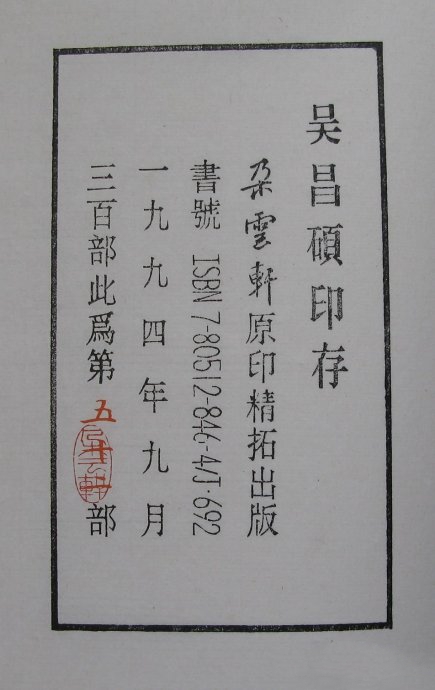 吴昌碩印存
朵雲軒原印精拓出版
書號 ISBN 7-80512-846-4/J·692
一九九四年九月
三百部此爲第五十部